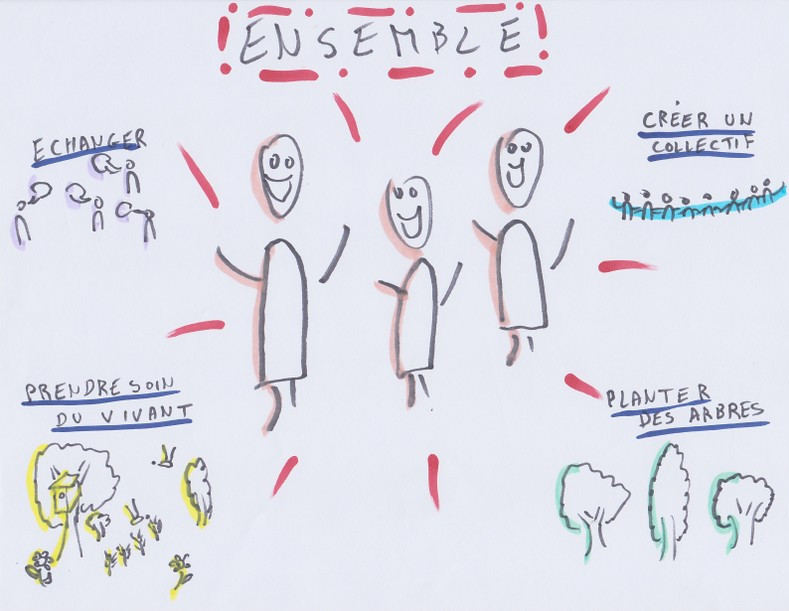 ENSEMBLE
ECHANGER
CRÉER UN
COLLECTIF
PRENDRE SOIN
DU VIVANT
PLANTER
DES ARBRES